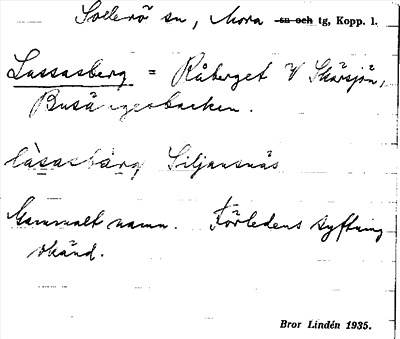 Sollerö sn, Mora sn och tg, Kopp. l.
Lassasberg = Råberget V Skärsjön,
Busängesbacken.
làsasbärg Siljansnäs
Gammalt namn. Förledens syftning
okänd.
Bror Lindén 1935.